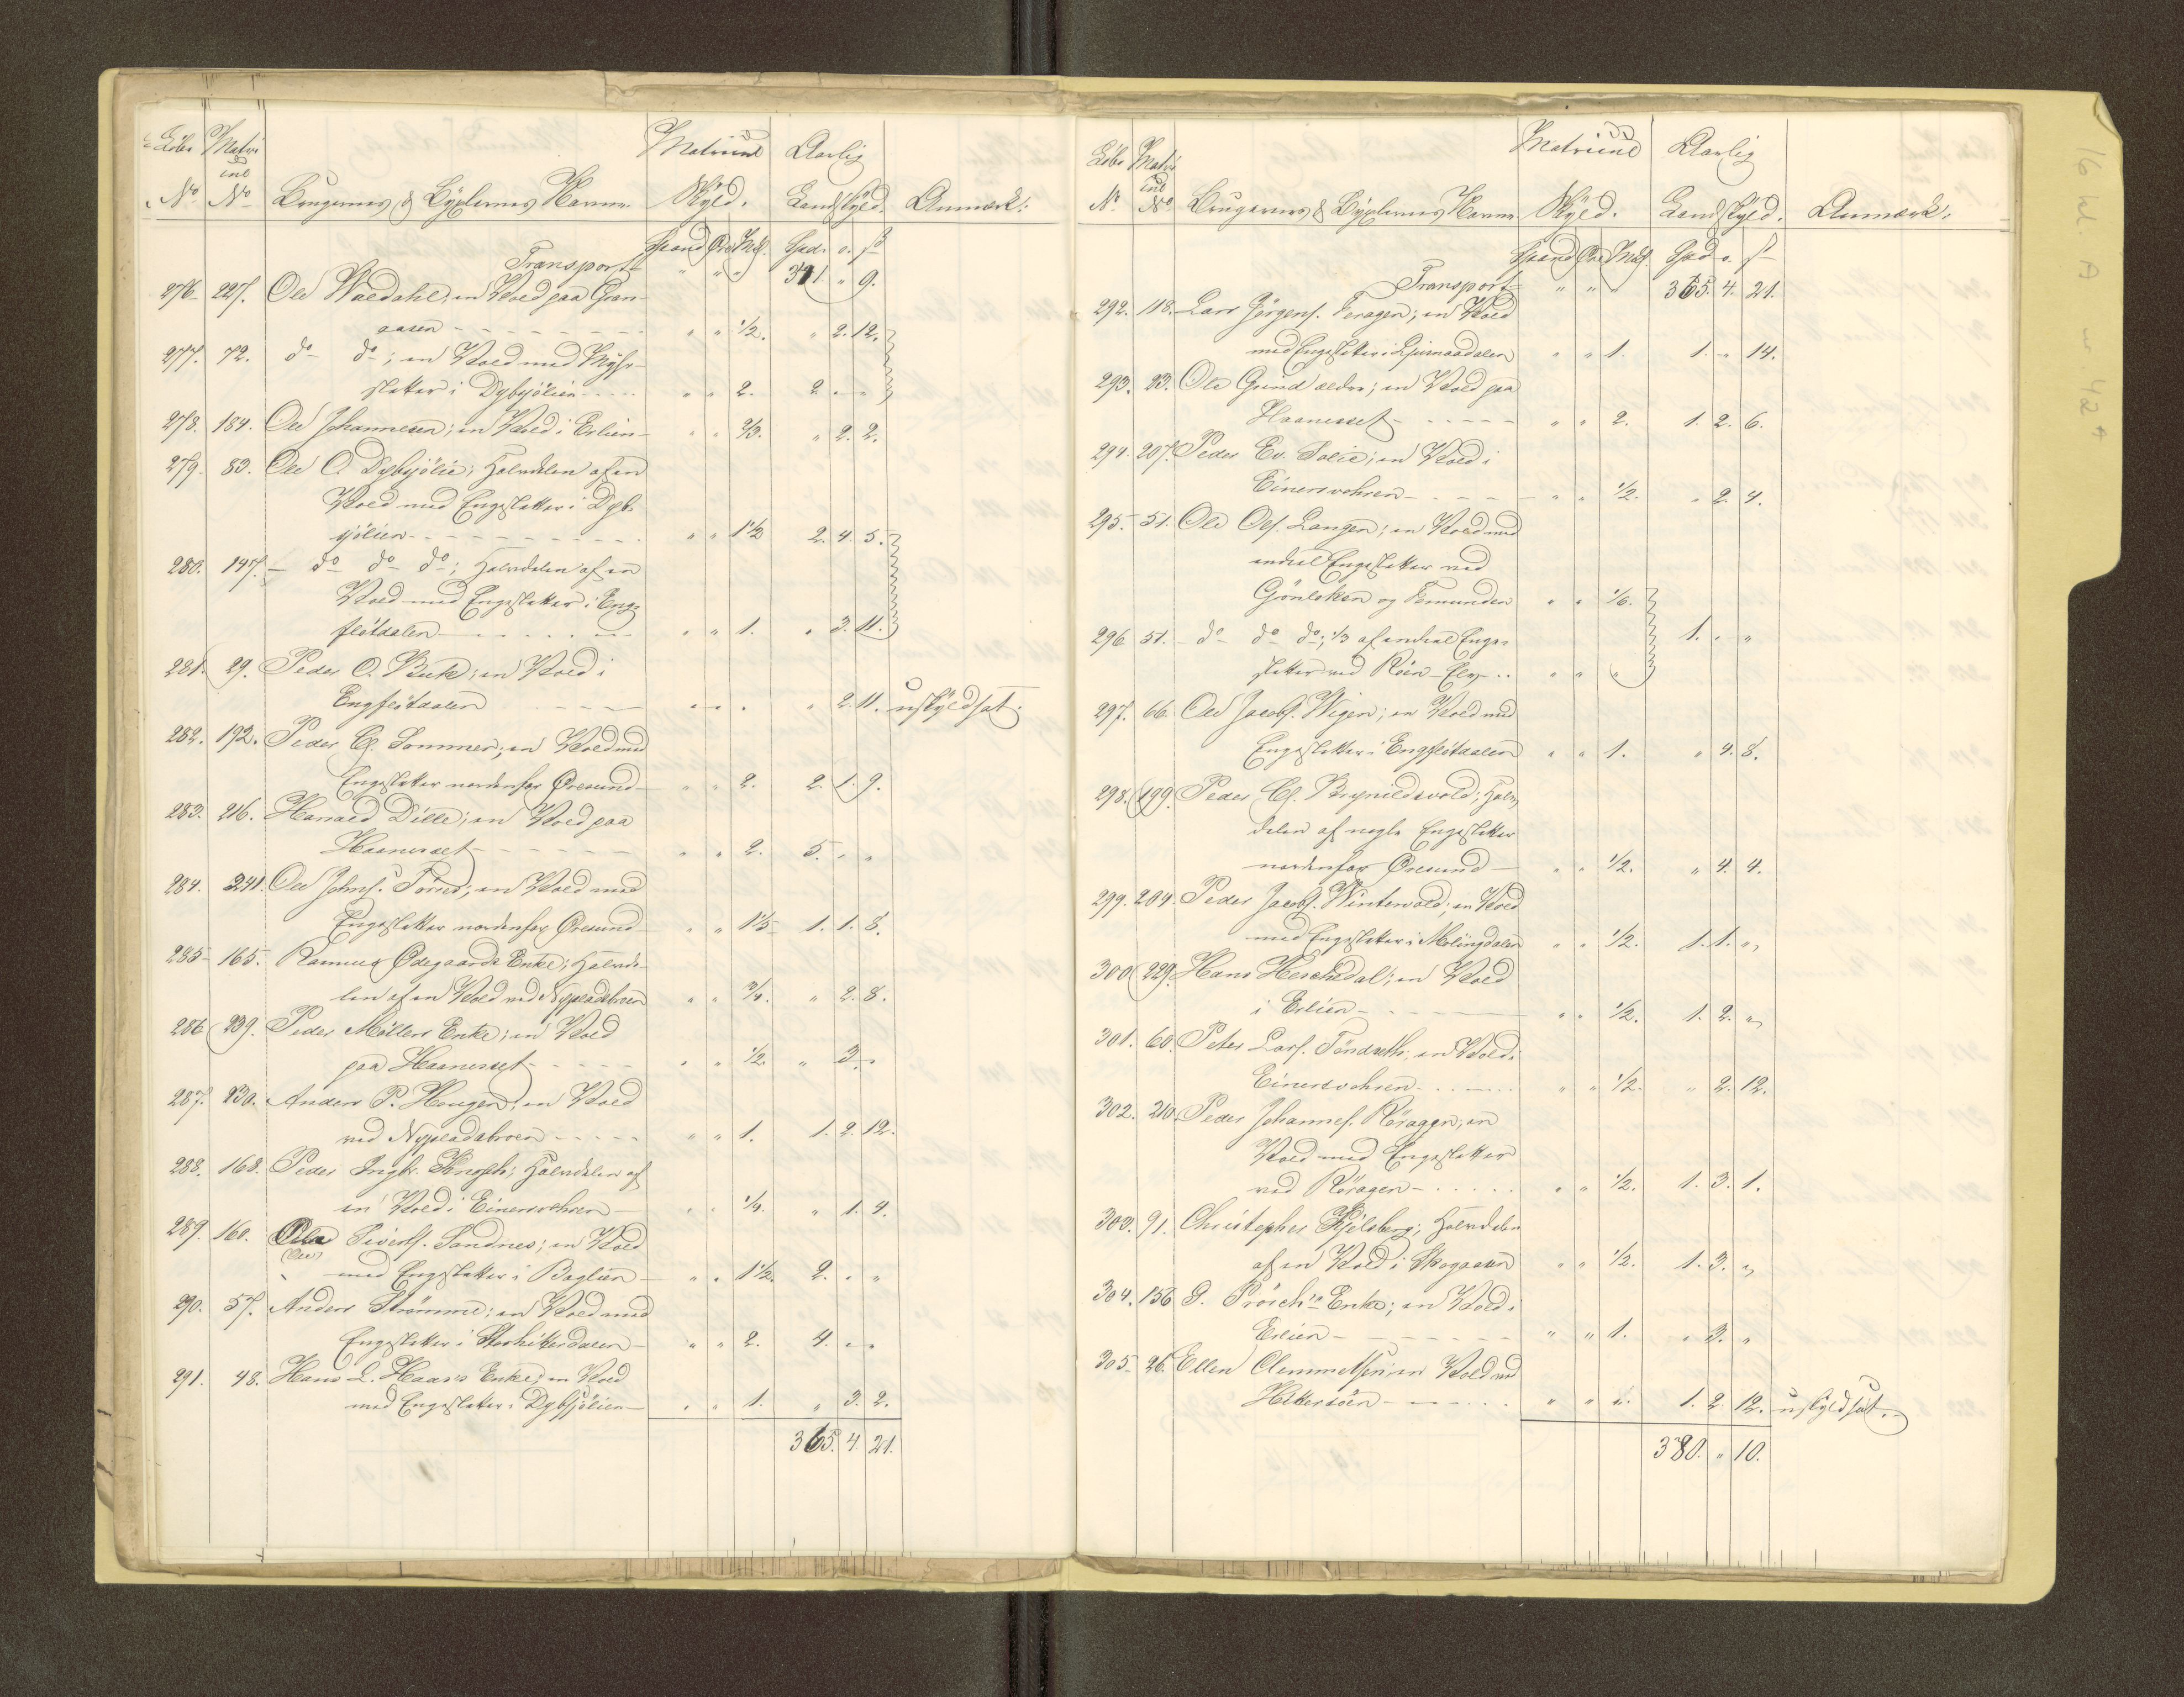 Löbe Matri Matriiul Aarlig
iul
No No Brugernes & Byxlernes Navne Skyld. Landskyld. Anmærk:
Spand Øre Mkl. Spd. o. ß
Transport " " " 341 " 9.
276 227. Ole Waldahl; en Vold paa Gran-
aasen " " 1/2. " 2. 12.
277. 72. do do; en Vold med Myhr-
sletter i Dybsjölien " " 2. 2. " "
278. 184. Ole Johannesen; en Vold i Erlien " " 2/3. " 2. 2.
279. 83. Ole O. Dybsjölie; Halvdelen af en
Vold med Engesletter i Dyb-
sjölien " " 1 1/2 2. 4. 5.
280. 147. do do do; Halvdelen af en
Vold med Engesletter i Eng-
flötdalen " " 1. " 3. 11.
281. 29. Peder O. Beck; en Vold i
Engflötdalen " " " " 2. 11. uskyldsat.
282. 192. Peder Cl. Sommer; en Vold med
Engesletter nordenfor Öresund " " 2. 2. 1. 9.
283. 216. Harald Dille; en Vold paa
Haanesset " " 2. 5. " "
284. 241. Ole Johns. Torres; en Vold med
Engesletter nordenfor Öresund " " 1 1/5 1. 1. 8.
285 165. Rasmus Ödegaards Enke; Halvde-
len af en Vold ved Nypladsbroen " " 3/4. " 2. 8.
286 239. Peder Möllers Enke; en Vold
paa Haanesset " " 1/2. " 3. "
287. 230. Anders P. Hougen; en Vold
ved Nypladsbroen " " 1. 1. 2. 12.
288. 168. Peder Ingbr. Knoph; Halvdelen af
en Vold i Einersvohren " " 1/4. " 1. 9.
289. 160. Ole Siverts. Sandnes; en Vold
(Ole)
med Engesletter i Baglien " " 1 1/2. 2. " "
290. 57. Anders Strømme; en Vold med
Engesletter i Storhitterdalen " " 2. 4. " "
291. 48. Hans L. Haas's Enke; en Vold
med Engesletter i Dybsjölien " " 1. " 3. 2.
365. 4. 21.
Löbe Matri Matriiul Aarlig
iul
No No Brugernes & Byxlernes Navne Skyld. Landskyld. Anmærk:
Spand Øre Mkl. Spd o. ß
Transport " " " 365. 4. 21.
292. 118. Lars Jörgens. Feragen; en Vold
med Engesletter i Ljusnaadalen " " 1. 1. " 14.
293. 83. Ole Grind ældre; en Vold paa
Haanesset " " 2. 1. 2. 6.
294. 207. Peder Ev. Solie; en Vold i
Einersvohren " " 1/2. " 2. 4.
295. 51. Ole Ols. Langen; en Vold med
endeel Engesletter ved
Grönleken og Femunden " " 1/6.
296 51. do do do; 1/3 af endeel Enge-
sletter ved Röen-Elv " " " 1. " "
297. 66. Ole Jacobs. Wigen; en Vold med
Engesletter i Engflötdalen " " 1. " 4. 8.
298. 199. Peder Cl. Brynildsvold; Halv-
delen af nogle Engesletter
nordenfor Öresund " " 1/2. " 4. 4.
299. 204. Peder Jacobs. Wintervold; en Vold
med Engesletter i Molingdalen " " 1/2. 1. 1. "
300 229. Hans Heschedal; en Vold
i Erlien " " 1/2. 1. 2. "
301. 60. Peter Lars. Töndseth; en Vold i
Einersvohren " " 1/2. " 2. 12.
302. 210. Peder Johannes. Röragen; en
Vold med Engesletter
ved Röragen " " 1/2. 1. 3. 1.
303. 91. Christopher Kjelsberg; Halvdelen
af en Vold i Skogaasen " " 1/2. 1. 3. "
304. 156 G. Prösch's Enke; en Vold i
Erlien " " 1. " 3. "
305 26. Ellen Clemmetsen; en Vold ved
Hittersöen " " " 1. 2. 12. uskyldsat.
380. " 10.